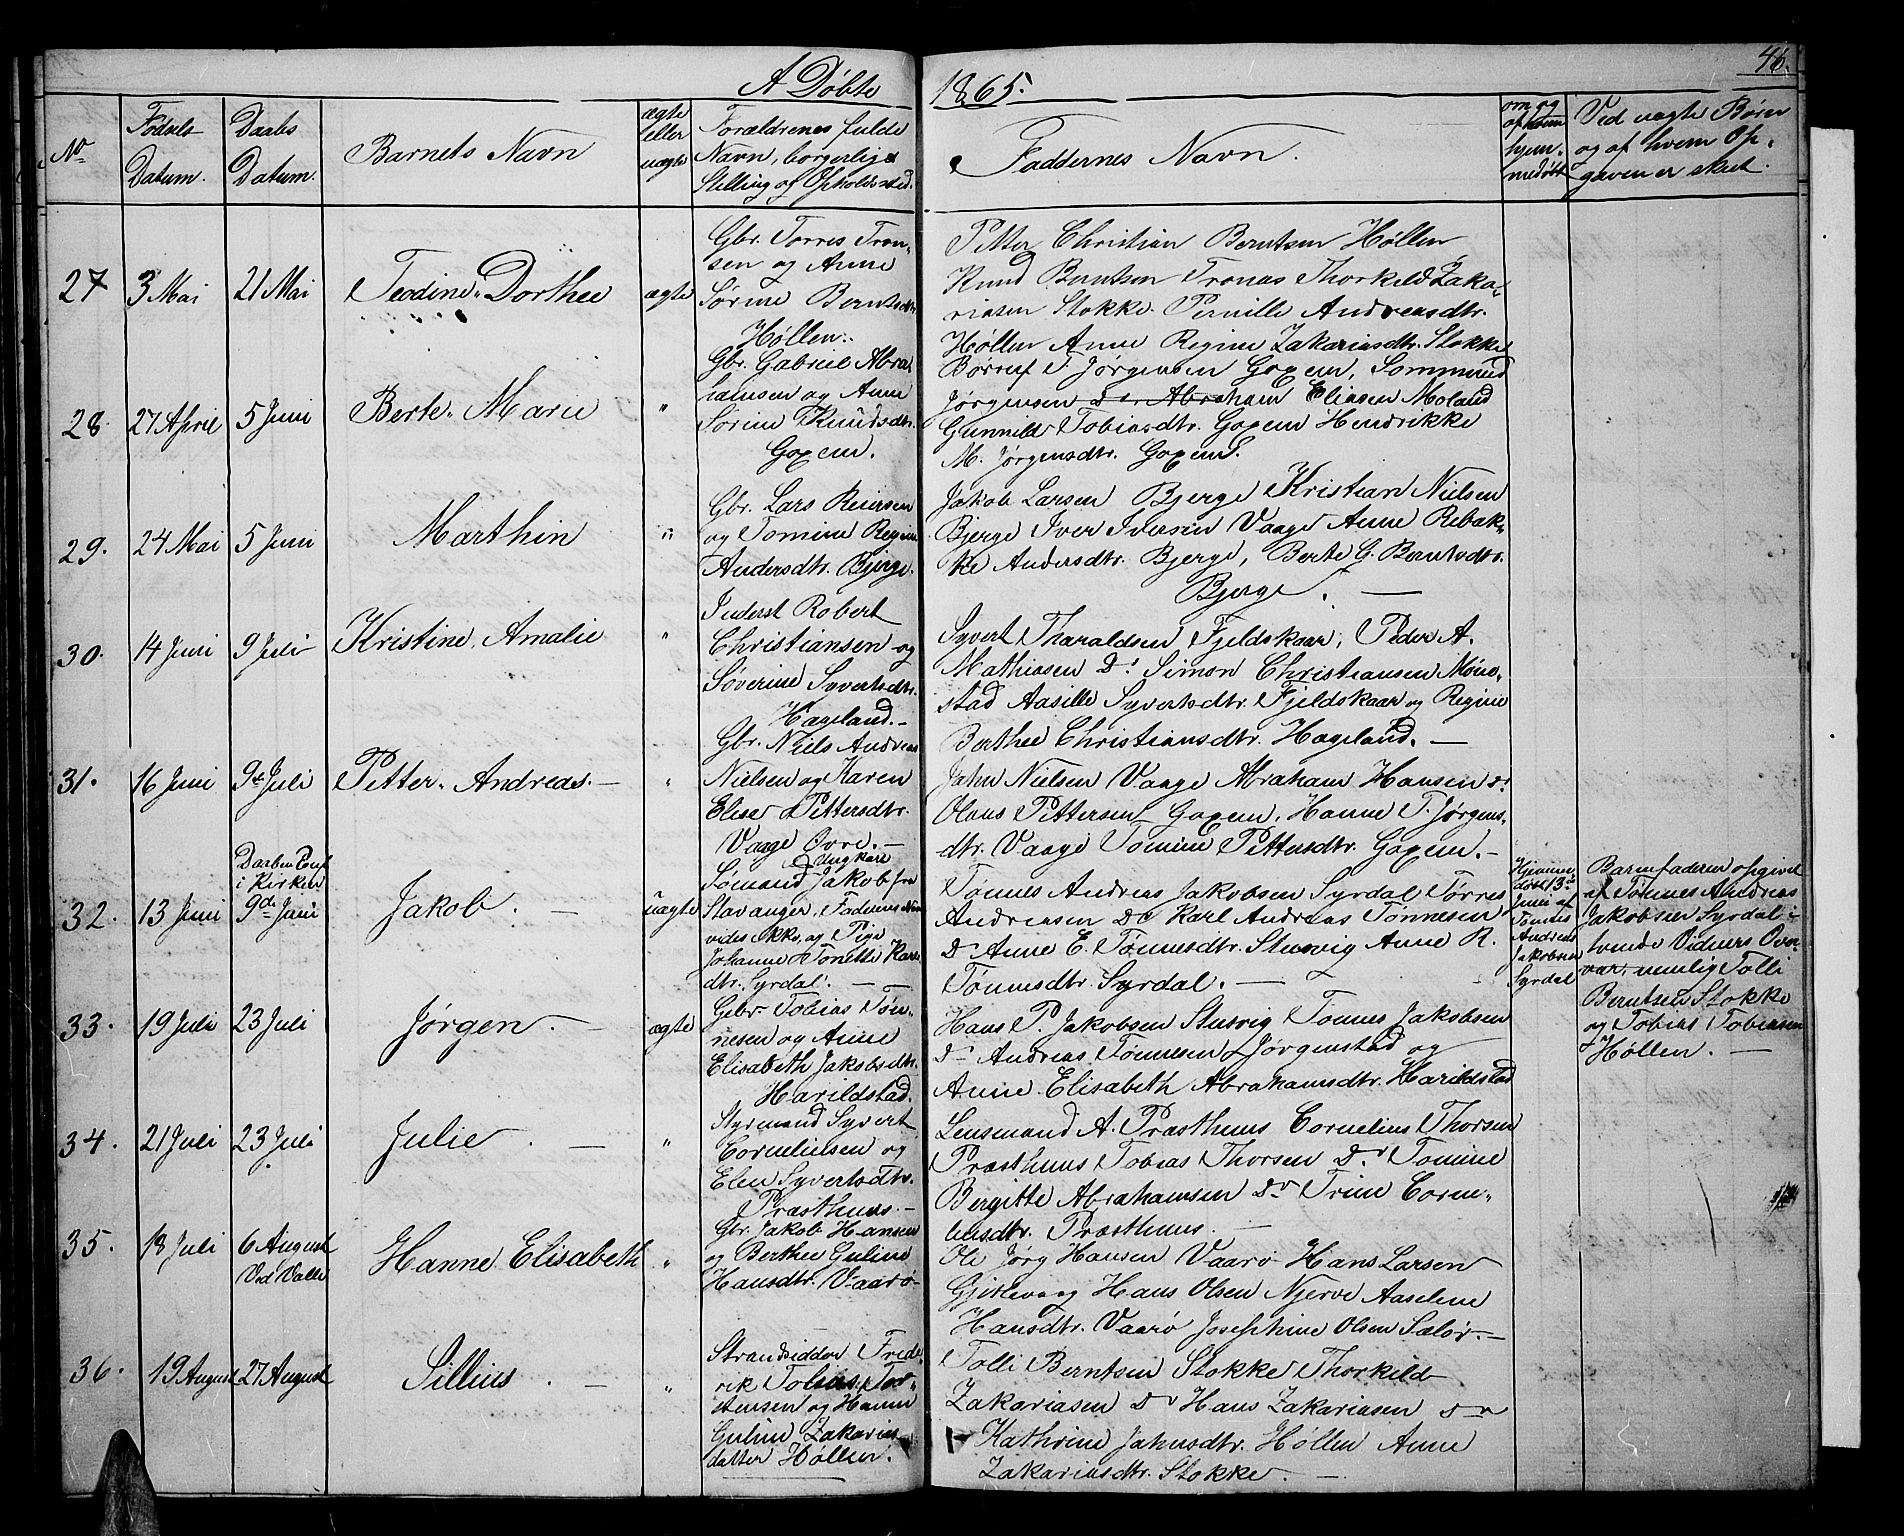 A Døbte 1865.
46.
No
Fødsels Datum.
Daabs Datum.
Barnets Navn
ægte eller uægte
Forældrenes fulde
Navn, borgerlige
Stilling og Opholdssted.
Faddernes Navn.
om og af hvem hjem-
medøbt
Ved uægte Børn
og af hvem Op-
gaven er skeet.
27 3 Mai 21 Mai Teodine Dorthee ægte
Gbr. Torres Tron-
sen og Anne
Sørine Berntsdtr.
Høllen.
Pitter Christian Berntsen Høllen
Knud Berntsen Tronas Thorkild Zaka-
riasen Stokke. Pernille Andreasdtr.
Høllen Anne Regine Zakariasdtr. Stokke
28. 27 April 5 Juni Berte Marie "
Gbr. Gabriel Abra-
hamsen og Anne
Sørine Knudsdtr.
Goxem.
T. Jørgensen Goxem, Sommund
Jørgensen Do Abraham Eliasen Moland
Gunnild Tobiasdtr. Goxem Hendrikke
M. Jørgensdtr. Goxem.
29. 24 Mai 5 Juni Marthin "
Gbr. Lars Reiersen
og Tomine Regine
Andersdtr. Bjerge.
Jakob Larsen Bjerge Kristian Nielsen
Bjerge Iver Iversen Vaage Anne Rebak-
ke Andersdtr. Bjerge, Berte G. Berntsdtr.
Bjerge.
30. 14 Juni 9 Juli Kristine Amalie "
Inderst Robert
Christiansen og
Soverine Syvertsdtr.
Hageland.
Syvert Tharaldsen Fjeldskaar, Peder A.
Mathiasen Do Simon Christiansen Møne-
stad Aasille Syvertsdtr. Fjeldskaar og Regine
Berthee Christiansdtr. Hageland.
31. 16 Juni 9de Juli Pitter Andreas. "
Gbr. Niels Andreas
Nielsen og Karen
Elise Pittersdtr.
Vaage Øvre.
Jahn Nielsen Vaage Abraham Hansen Do
Olaus Pittersen Goxem, Hanne T. Jørgens-
dtr. Vaage Tomine Pittersdtr. Goxem.
32. 13 Juni
Daaben Conf.
i Kirken
9de Juni
Jakob. uægte
Ungkarl
Sømand Jakob fra
Stavanger, Faderens Navn
vides ikke, og Pige
Johanne Tonette
dtr. Syrdal.
Tønnes Andreas Jakobsen Syrdal Tørres
Andreasen Do Karl Andreas Tønnesen
Do Anne E. Tønnesdtr. Stusvig Anne R.
Tønnesdtr. Syrdal.
Hjemme-
døbt 13de
Juni af
Tønnes
Andreas
Jakobsen
Syrdal
Barnefaderen opgivet
af Tønnes Andreas
Jakobsen Syrdal i
tvende Vidners Over-
vær, nemlig Tolli
Berntsen Stokke
og Tobias Tobiasen
Høllen.
33. 19 Juli 23 Juli Jørgen. ægte
Gbr. Tobias Tøn-
nesen og Anne
Elisabeth Jakobsdtr.
Harildstad.
Hans P. Jakobsen Stusvig Tønnes Jakobsen
Do Andreas Tønnesen Jørgenstad og
Anne Elisabeth Abrahamsdtr. Harildstad
34. 21 Juli 23 Juli Julie. "
Styrmand Syvert
Corneliusen og
Elen Syvertsdtr.
Præsthuus.
Lensmand A. Præsthuus Cornelius Thorsen
Præsthuus Tobias Thorsen Do Tomine
Birgitte Abrahamsen Do Trine Corne-
liusdtr. Præsthuus.
35. 18 Juli 6 August
Ved Valle
Hanne Elisabeth "
Gbr. Jakob Hansen
og Berthee Guline
Hansdtr. Vaarø
Ole Jørg Hansen Vaarø Hans Larsen
Gjislevaag Hans Olsen Njerve Aaselene
Hansdtr. Vaarø Josephine Olsen Sælør.
36. 19 August 27 August Sillius. "
Strandsidder Frede-
rik Tobias Tor-
stensen og Hanne
Guline Zakarias-
datter Høllen.
Tolli Berntsen Stokke Thorkild
Zakariasen Do Hans Zakariasen Do
Kathrine Jahnsdtr. Høllen Anne
Zakariasdtr. Stokke.